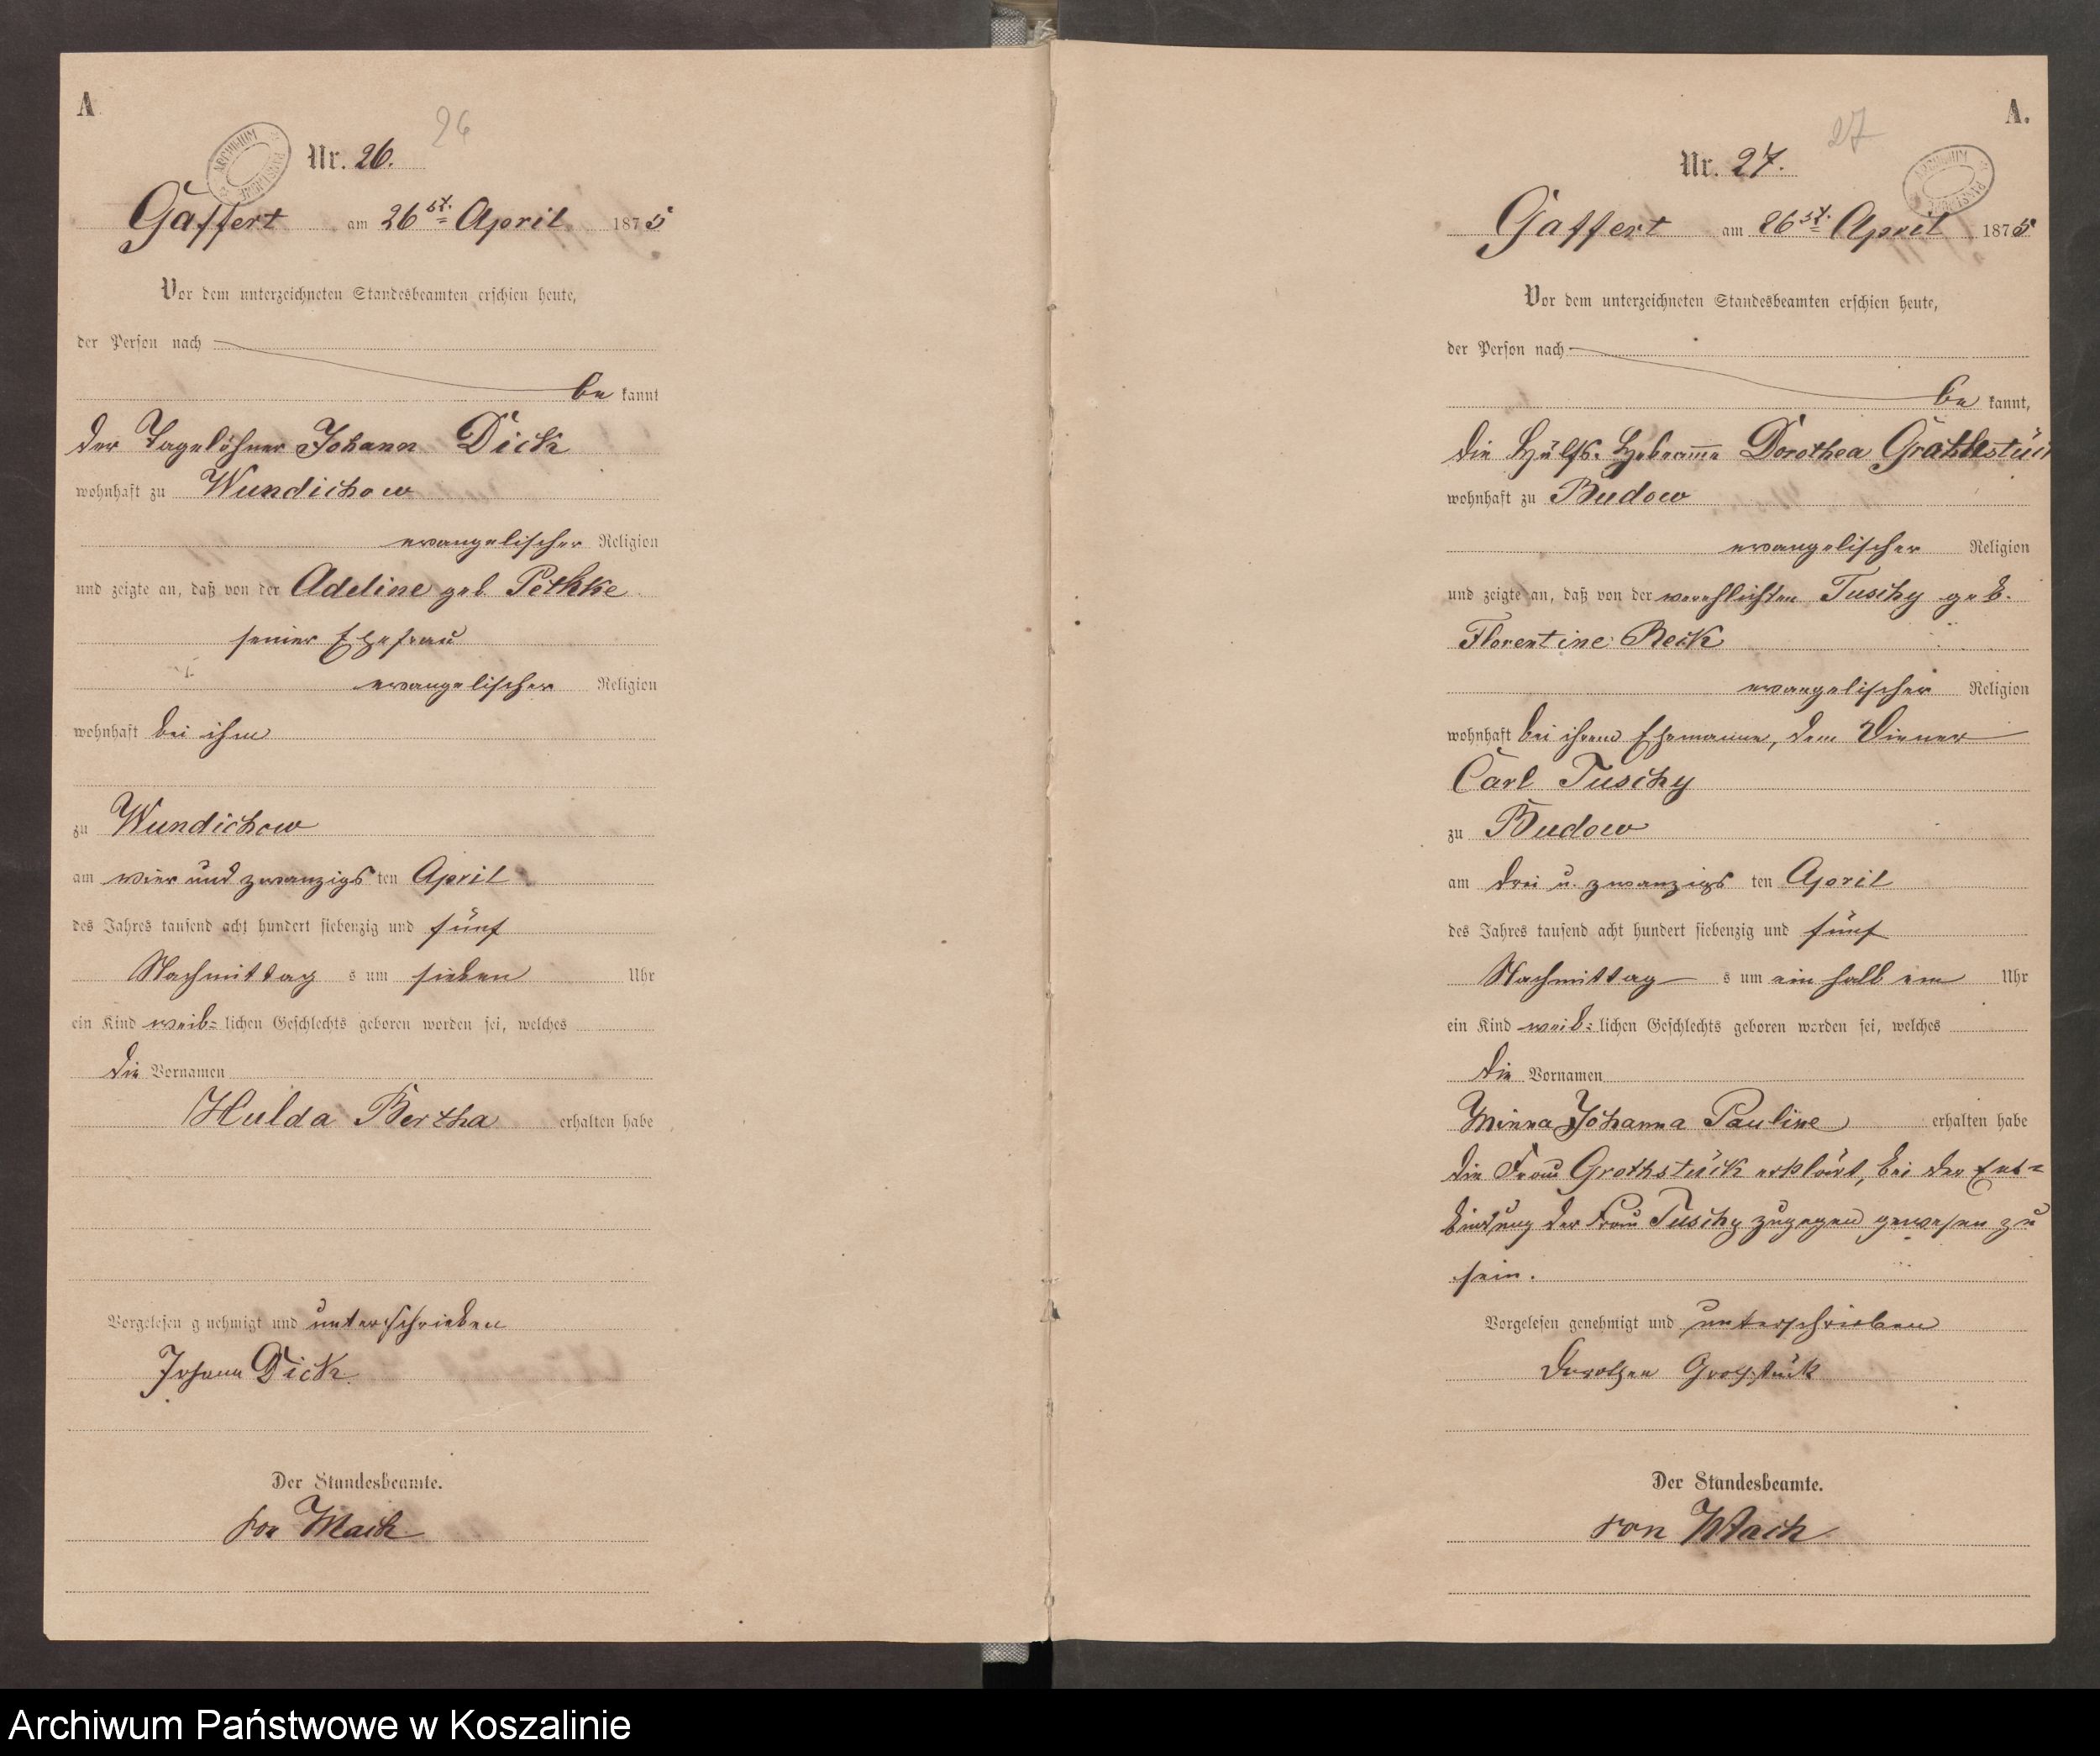 A
26
ARCHIWUM PAŃSTWOWE
Nr. 26.
Gaffert am 26st. April 1875
Vor dem unterzeichneten Standesbeamten erschien heute,
der Person nach
be kannt
der Tagelöhner Johann Dick
wohnhaft zu Wundichow
evangelischer Religion
und zeigte an, daß von der Adeline geb Pethke
seiner Ehefrau
evangelischer Religion
wohnhaft bei ihm
zu Wundichow
am vier und zwanzigs ten April
des Jahres tausend acht hundert siebenzig und fünf
Nachmittag s um sieben Uhr
ein Kind weib= lichen Geschlechts geboren worden sei, welches
die Vornamen
Hulda Bertha erhalten habe
Vorgelesen g nehmigt und unterschrieben
Johann Dick
Der Standesbeamte.
von Mach
A.
27
ARCHIWUM PAŃSTWOWE
Nr. 27.
Gaffert am 26st. April 1875
Vor dem unterzeichneten Standesbeamten erschien heute,
der Person nach
be kannt,
die Hülfs. Hebeamme Dorothea
wohnhaft zu Budow
evangelischer Religion
und zeigte an, daß von der verehlichten Tuschy geb.
Florentine Reck
evangelischer Religion
wohnhaft bei ihrem Ehemanne, dem Diener
Carl Tuschy
zu Budow
am drei u. zwanzigs ten April
des Jahres tausend acht hundert siebenzig und fünf
Nachmittag s um ein halb ein Uhr
ein Kind weib= lichen Geschlechts geboren worden sei, welches
die Vornamen
Minna Johanna Pauline erhalten habe
die Frau Grothstück erklärt, bei der Ent=
bindung der Frau Tuschy zugegen gewesen zu
sein.
Vorgelesen genehmigt und unterschrieben
Dorothea Grothstück
Der Standesbeamte.
von Mach
Archiwum Państwowe w Koszalinie